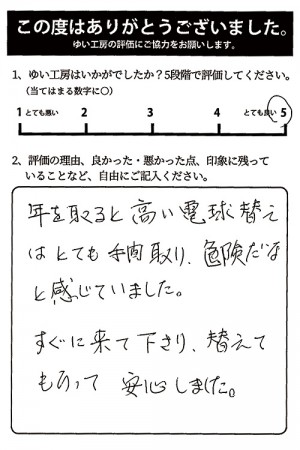 この度はありがとうございました。
ゆい工房の評価にご協力をお願いします。
1、ゆい工房はいかがでしたか？5段階で評価してください。
（当てはまる数字に○）
1 とても悪い 2 3 4 とても良い 5
2、評価の理由、良かった・悪かった点、印象に残って
いることなど、自由にご記入ください。
年を取ると高い電球替え
はとても手間取り、危険だな
と感じていました。
すぐに来て下さり、替えて
もらって 安心しました。